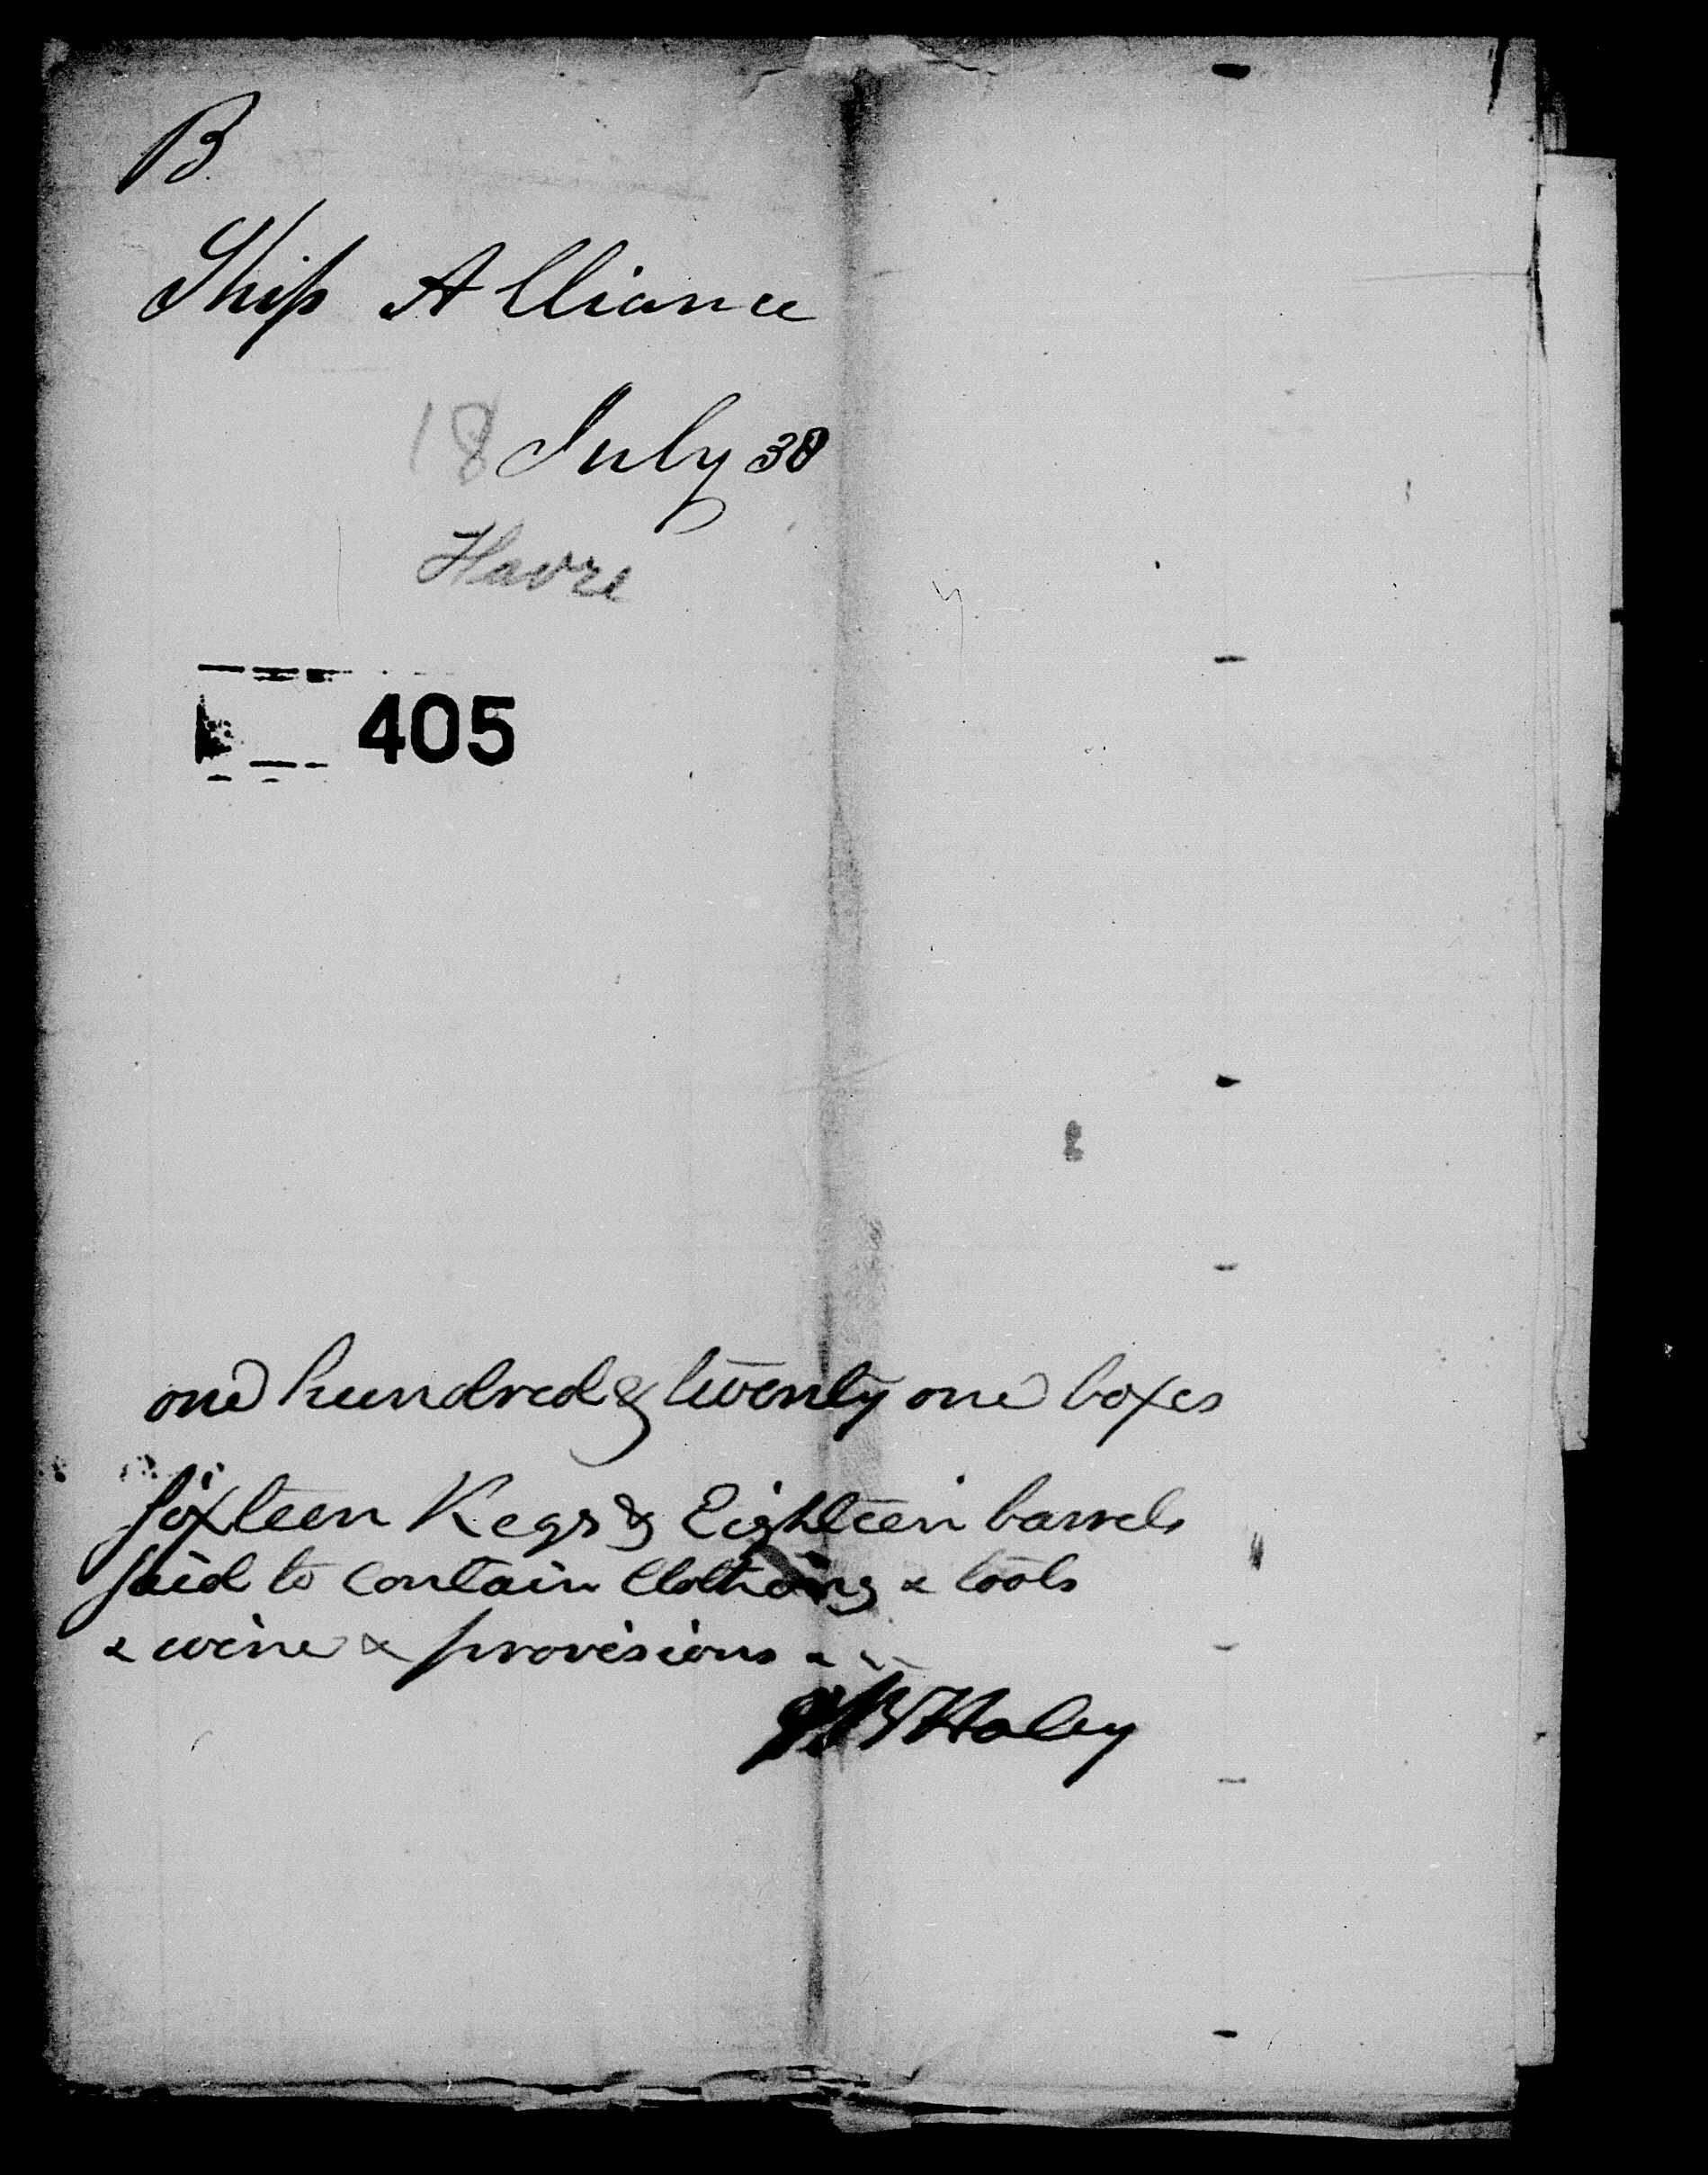 B.
Ship Alliance
18 July 38
Havre
405
one hundred & twenty one boxes
sixteen Kegs & Eighteen barrels
said to contain Clothing & tools
& wine & provisions
Haley